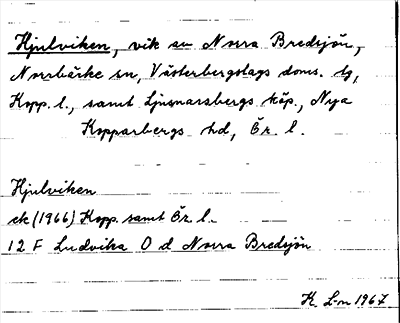 Hjulviken, vik av Norra Bredsjön,
Norrbärke sn, Västerbergslags doms. tg,
Kopp. l., samt Ljusnarsbergs köp., Nya
Kopparbergs hd, Ör. l.
Hjulviken
ek (1966) Kopp. samt Ör. l.
12 F Ludvika O d Norra Bredsjön
K. L-n 1967